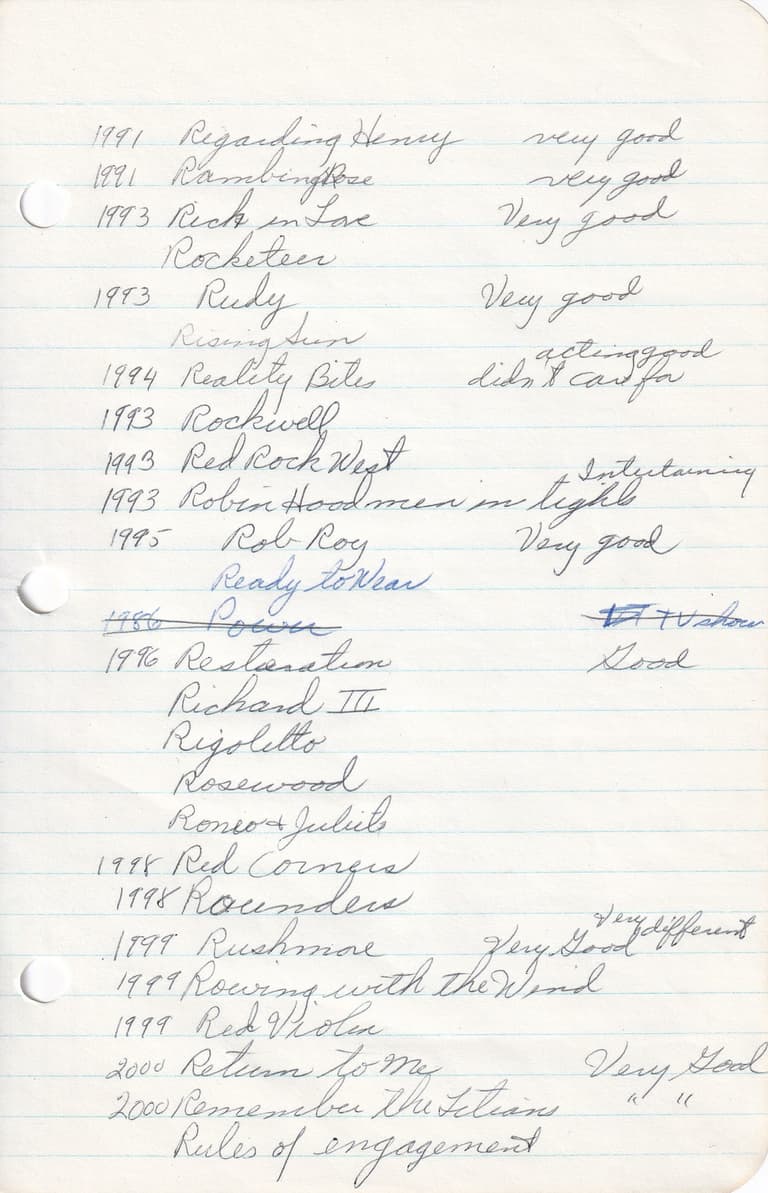 1991 Regarding Henry very good
1991 Rambing Rose very good
1993 Rich in Love Very good
Rocketeer
1993 Rudy Very good
Rising Sun
acting good
1994 Reality Bites didn't care for
1993 Rockwell
1993 Red Rock West
Intertaining
1993 Robin Hood men in tights
1995 Rob Roy Very good
Ready to Wear
1986 Power TV show
1996 Restaration Good
Richard III
Rigoletto
Rosewood
Romeo + Juliets
1998 Red Corners
1998 Rounders
Very different
1999 Rushmore Very Good
1999 Rowing with the Wind
1999 Red Violen
2000 Return to Me Very Good
2000 Remember the Titians " "
Rules of engagement